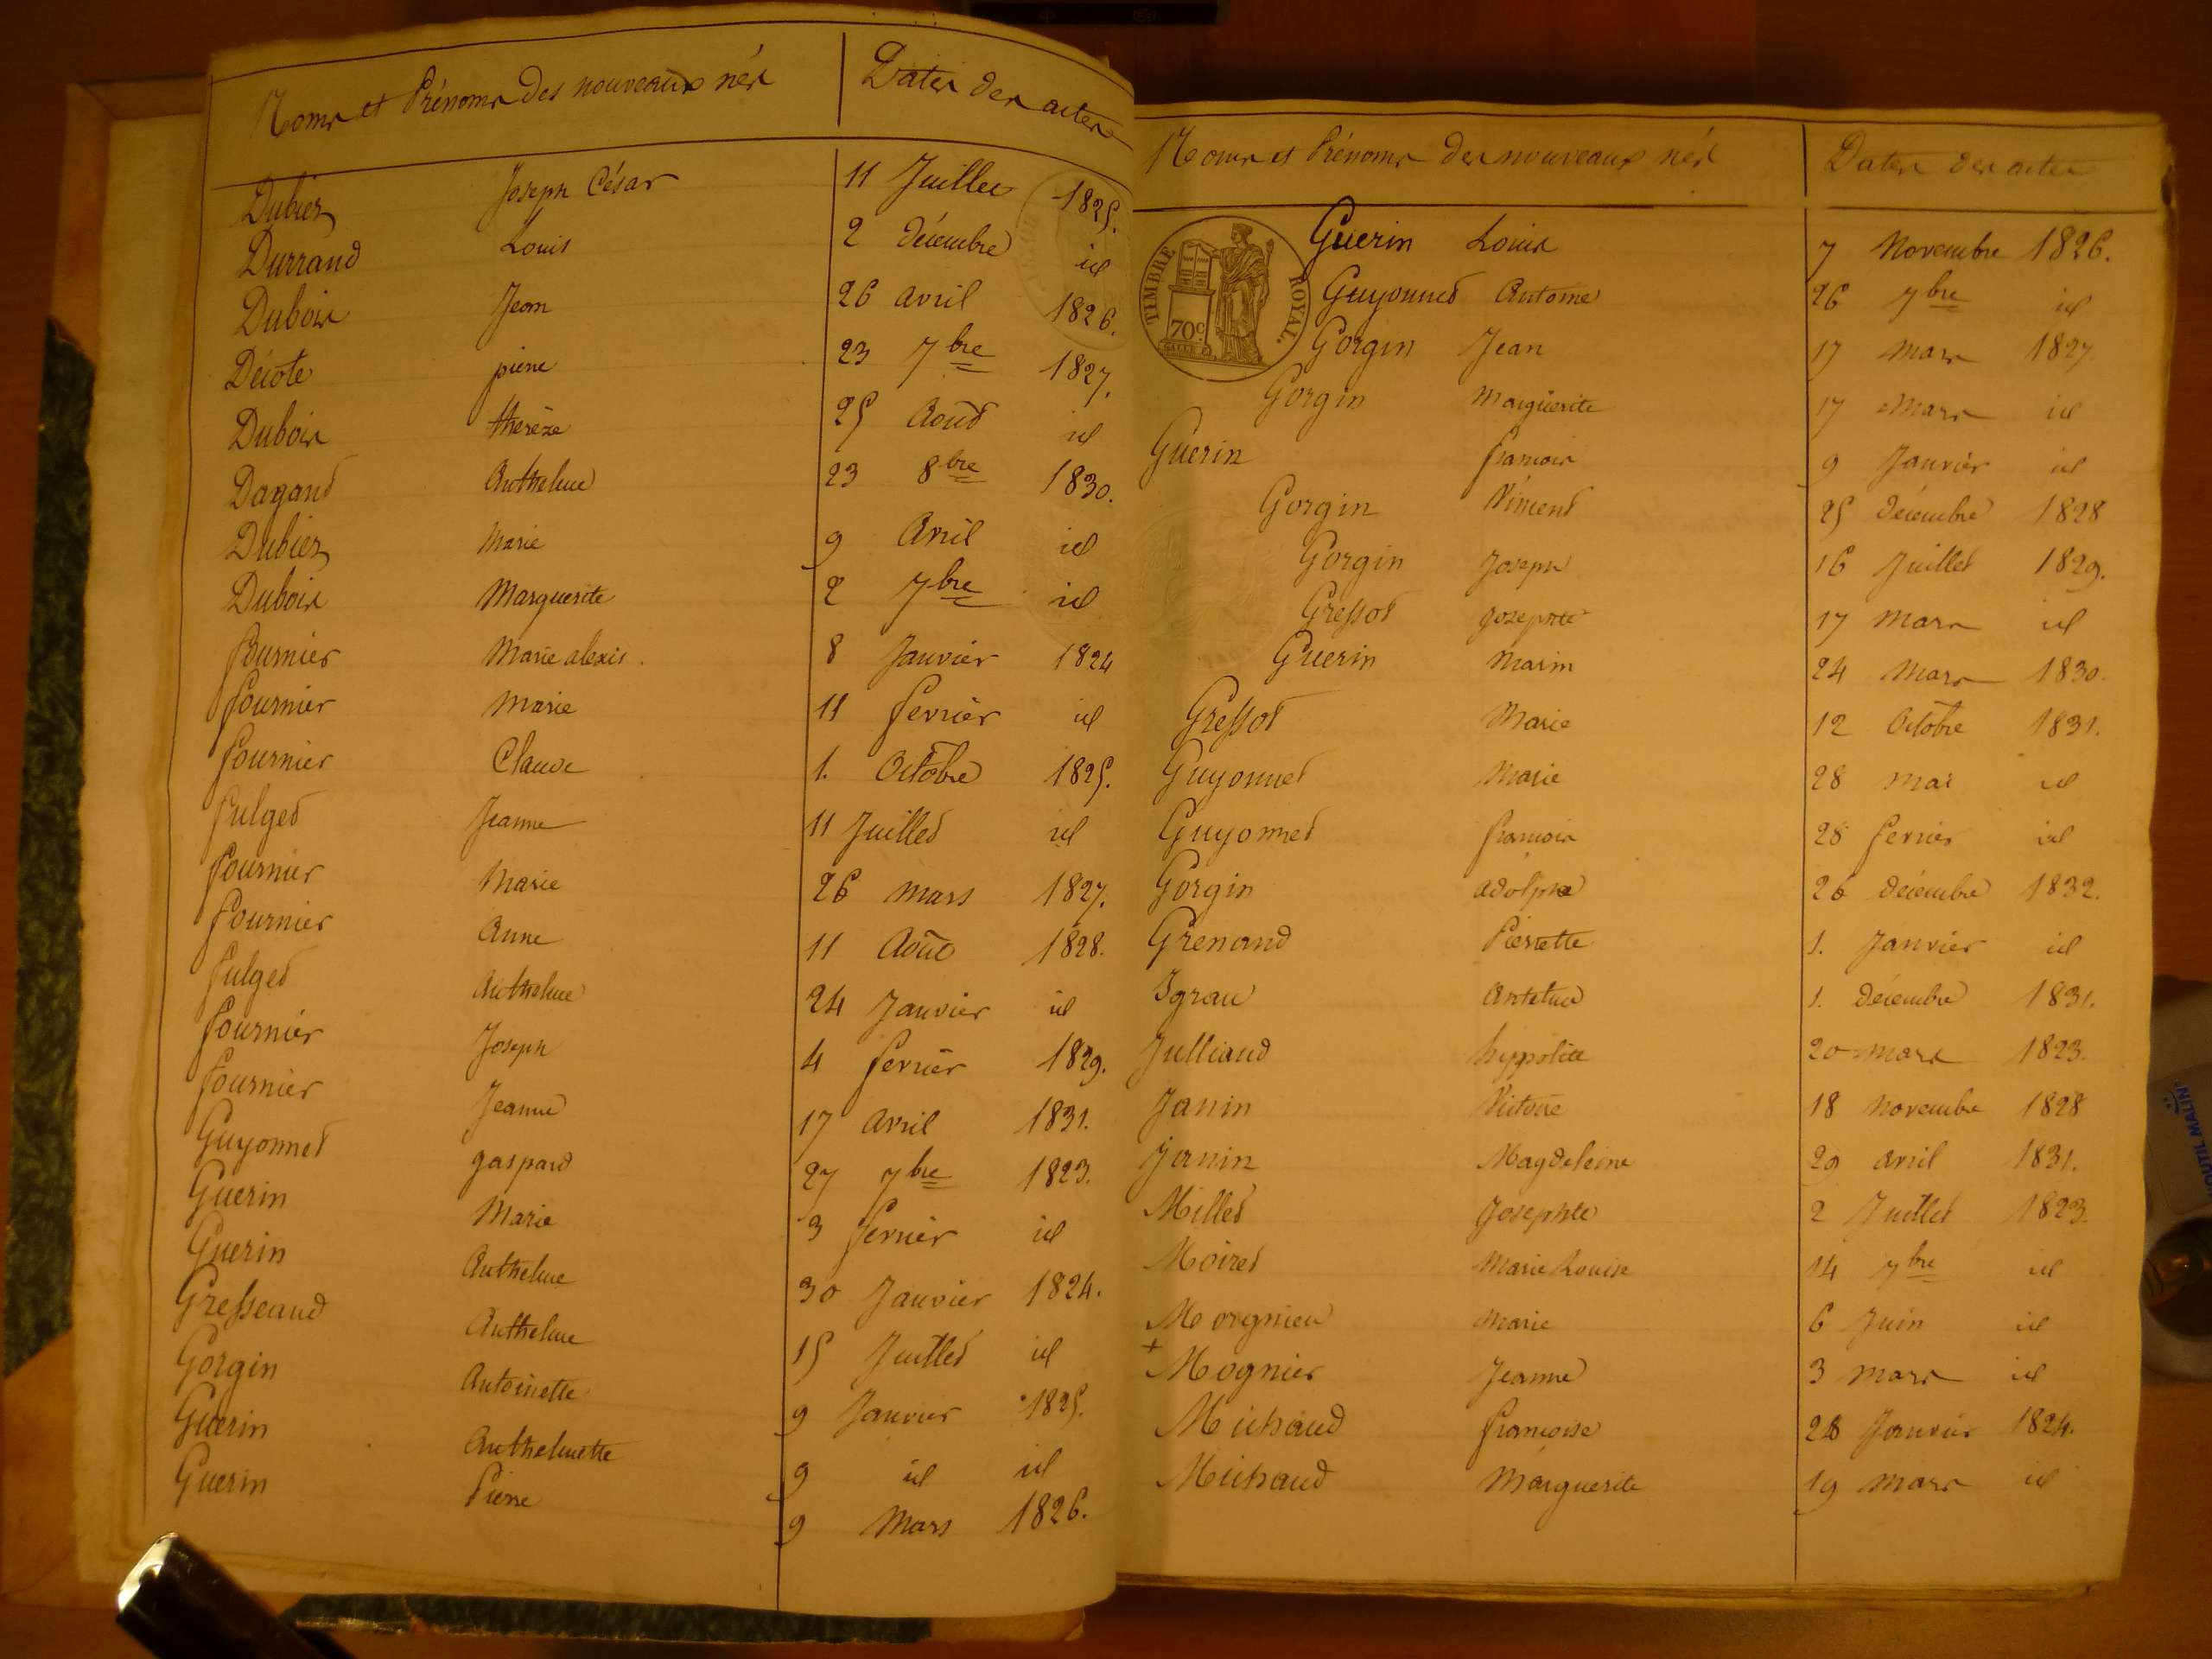 Noms et Prénoms des nouveaux nés Dates des actes
Dubiez Joseph César 11 Juillet 1825.
Durrand Louis 2 décembre id
Dubois Jean 26 avril 1826.
Décote pierre 23 7bre 1827.
Dubois thérèze 25 Aoud id
Dagand Anthelme 23 8bre 1830.
Dubiez Marie 9 Avril id
Dubois Marguerite 2 7bre id
fournier Marie alexis 8 Janvier 1824
fournier Marie 11 fevrier id
fournier Claude 1. Octobre 1825.
fulged Jeanne 11 Juilled id
fournier Marie 26 mars 1827.
fournier Anne 11 Août 1828.
fulged Anthelme 24 Janvier id
fournier Joseph 4 fevrier 1829.
fournier Jeanne 17 avril 1831.
Guyonned gaspard 27 7bre 1823.
Guerin Marie 3 fevrier id
Guerin Anthelme 30 Janvier 1824.
Gresseaud Anthelme 15 Juilled id
Gorgin Antoinette 9 Janvier 1825.
Guerin Anthelmette 9 id id
Guerin Pierre 9 Mars 1826.
Noms et Prénoms des nouveaux nés Dates des actes
TIMBRE ROYAL.
70c
Guerin Louis 7 Novembre 1826.
Guyonned Antoine 26 7bre id
Gorgin Jean 17 mars 1827.
Gorgin Marguerite 17 Mars id
Guerin francois 9 Janvier id
Gorgin Vincend 25 décembre 1828
Gorgin Joseph 16 Juilled 1829.
Gressod Josephte 17 Mars id
Guerin Marin 24 Mars 1830.
Gressod Marie 12 Octobre 1831.
Guyonned Marie 28 mai id
Guyonned francois 28 fevrier id
Gorgin adolphe 26 décembre 1832.
Grenand Pierrette 1. Janvier id
Igrau Antelme 1. décembre 1831.
Julliand hyppolite 20 mars 1823.
Janin Victoire 18 novembre 1828
Janin Magdeleine 29 avril 1831.
Milled Josephte 2 Juilled 1823.
Moired Marie Louise 14 7bre id
Morgnieu Marie 6 Juin id
+ Mognier Jeanne 3 mars id
Michaud francoise 28 Janvier 1824.
Michaud Marguerite 19 mars id
OUTIL MALIN